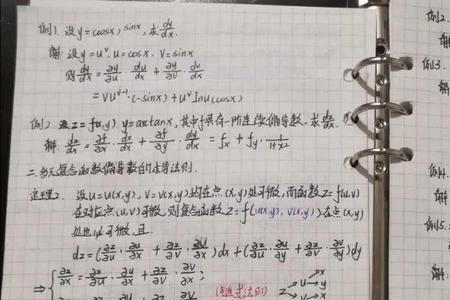 例1. 设 y=(cosx)^sinx, 求 dy/dx.
解: 设 y=u^v. u=cosx. v=sinx
则 dy/dx = ∂y/∂u · du/dx + ∂y/∂v · dv/dx
= vu^(v-1)·(-sinx) + u^v lnu(cosx)
例2 设 z=f(x,y), y=arctanx, 其中f具有一阶连续偏导数. 求 dz/dx.
解 dz/dx = ∂f/∂x · dx/dx + ∂f/∂y · dy/dx = fx + fy · 1/(1+x²)
二. 多元复合函数偏导数的求导法则.
定理2. 设 u=u(x,y), v=v(x,y) 均在点(x,y)处可微, 而函数 z=f(u,v)
在对应点(u,v)可微, 则复合函数 z=f(u(x,y), v(x,y)) 在点(x,y)
处也可微, 且
dz=(∂z/∂u · ∂u/∂x + ∂z/∂v · ∂v/∂x)dx + (∂z/∂u · ∂u/∂y + ∂z/∂v · ∂v/∂y)dy
⇒ { ∂z/∂x = ∂z/∂u · ∂u/∂x + ∂z/∂v · ∂v/∂x ;
(链式法则) z u x
v y
例2.
例3.
例4.
例5.